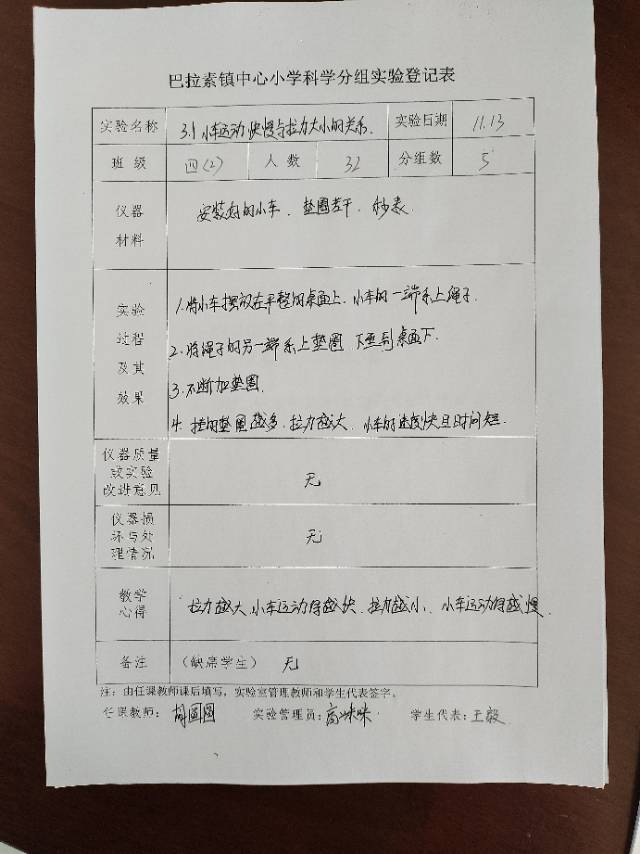 巴拉素镇中心小学科学分组实验登记表
实验名称 3.1 小车运动快慢与拉力大小的关系. 实验日期 11.13
班 级 四(2) 人 数 32 分组数 5
仪器
材料
安装好的小车、垫圈若干、秒表.
实验
过程
及其
效果
1.将小车摆放在平整的桌面上、小车的一端系上绳子.
2.将绳子的另一端系上垫圈 下垂到桌面下.
3.不断加垫圈.
4.挂的垫圈越多、拉力越大、小车的速度快且时间短.
仪器质量
或实验
改进意见
无
仪器损
坏与处
理情况
无
教学
心得
拉力越大、小车运动得越快、拉力越小、小车运动得越慢.
备注 (缺席学生) 无
注：由任课教师课后填写，实验室管理教师和学生代表签字。
任课教师： 胡圆圆 实验管理员： 高咪咪 学生代表： 王毅